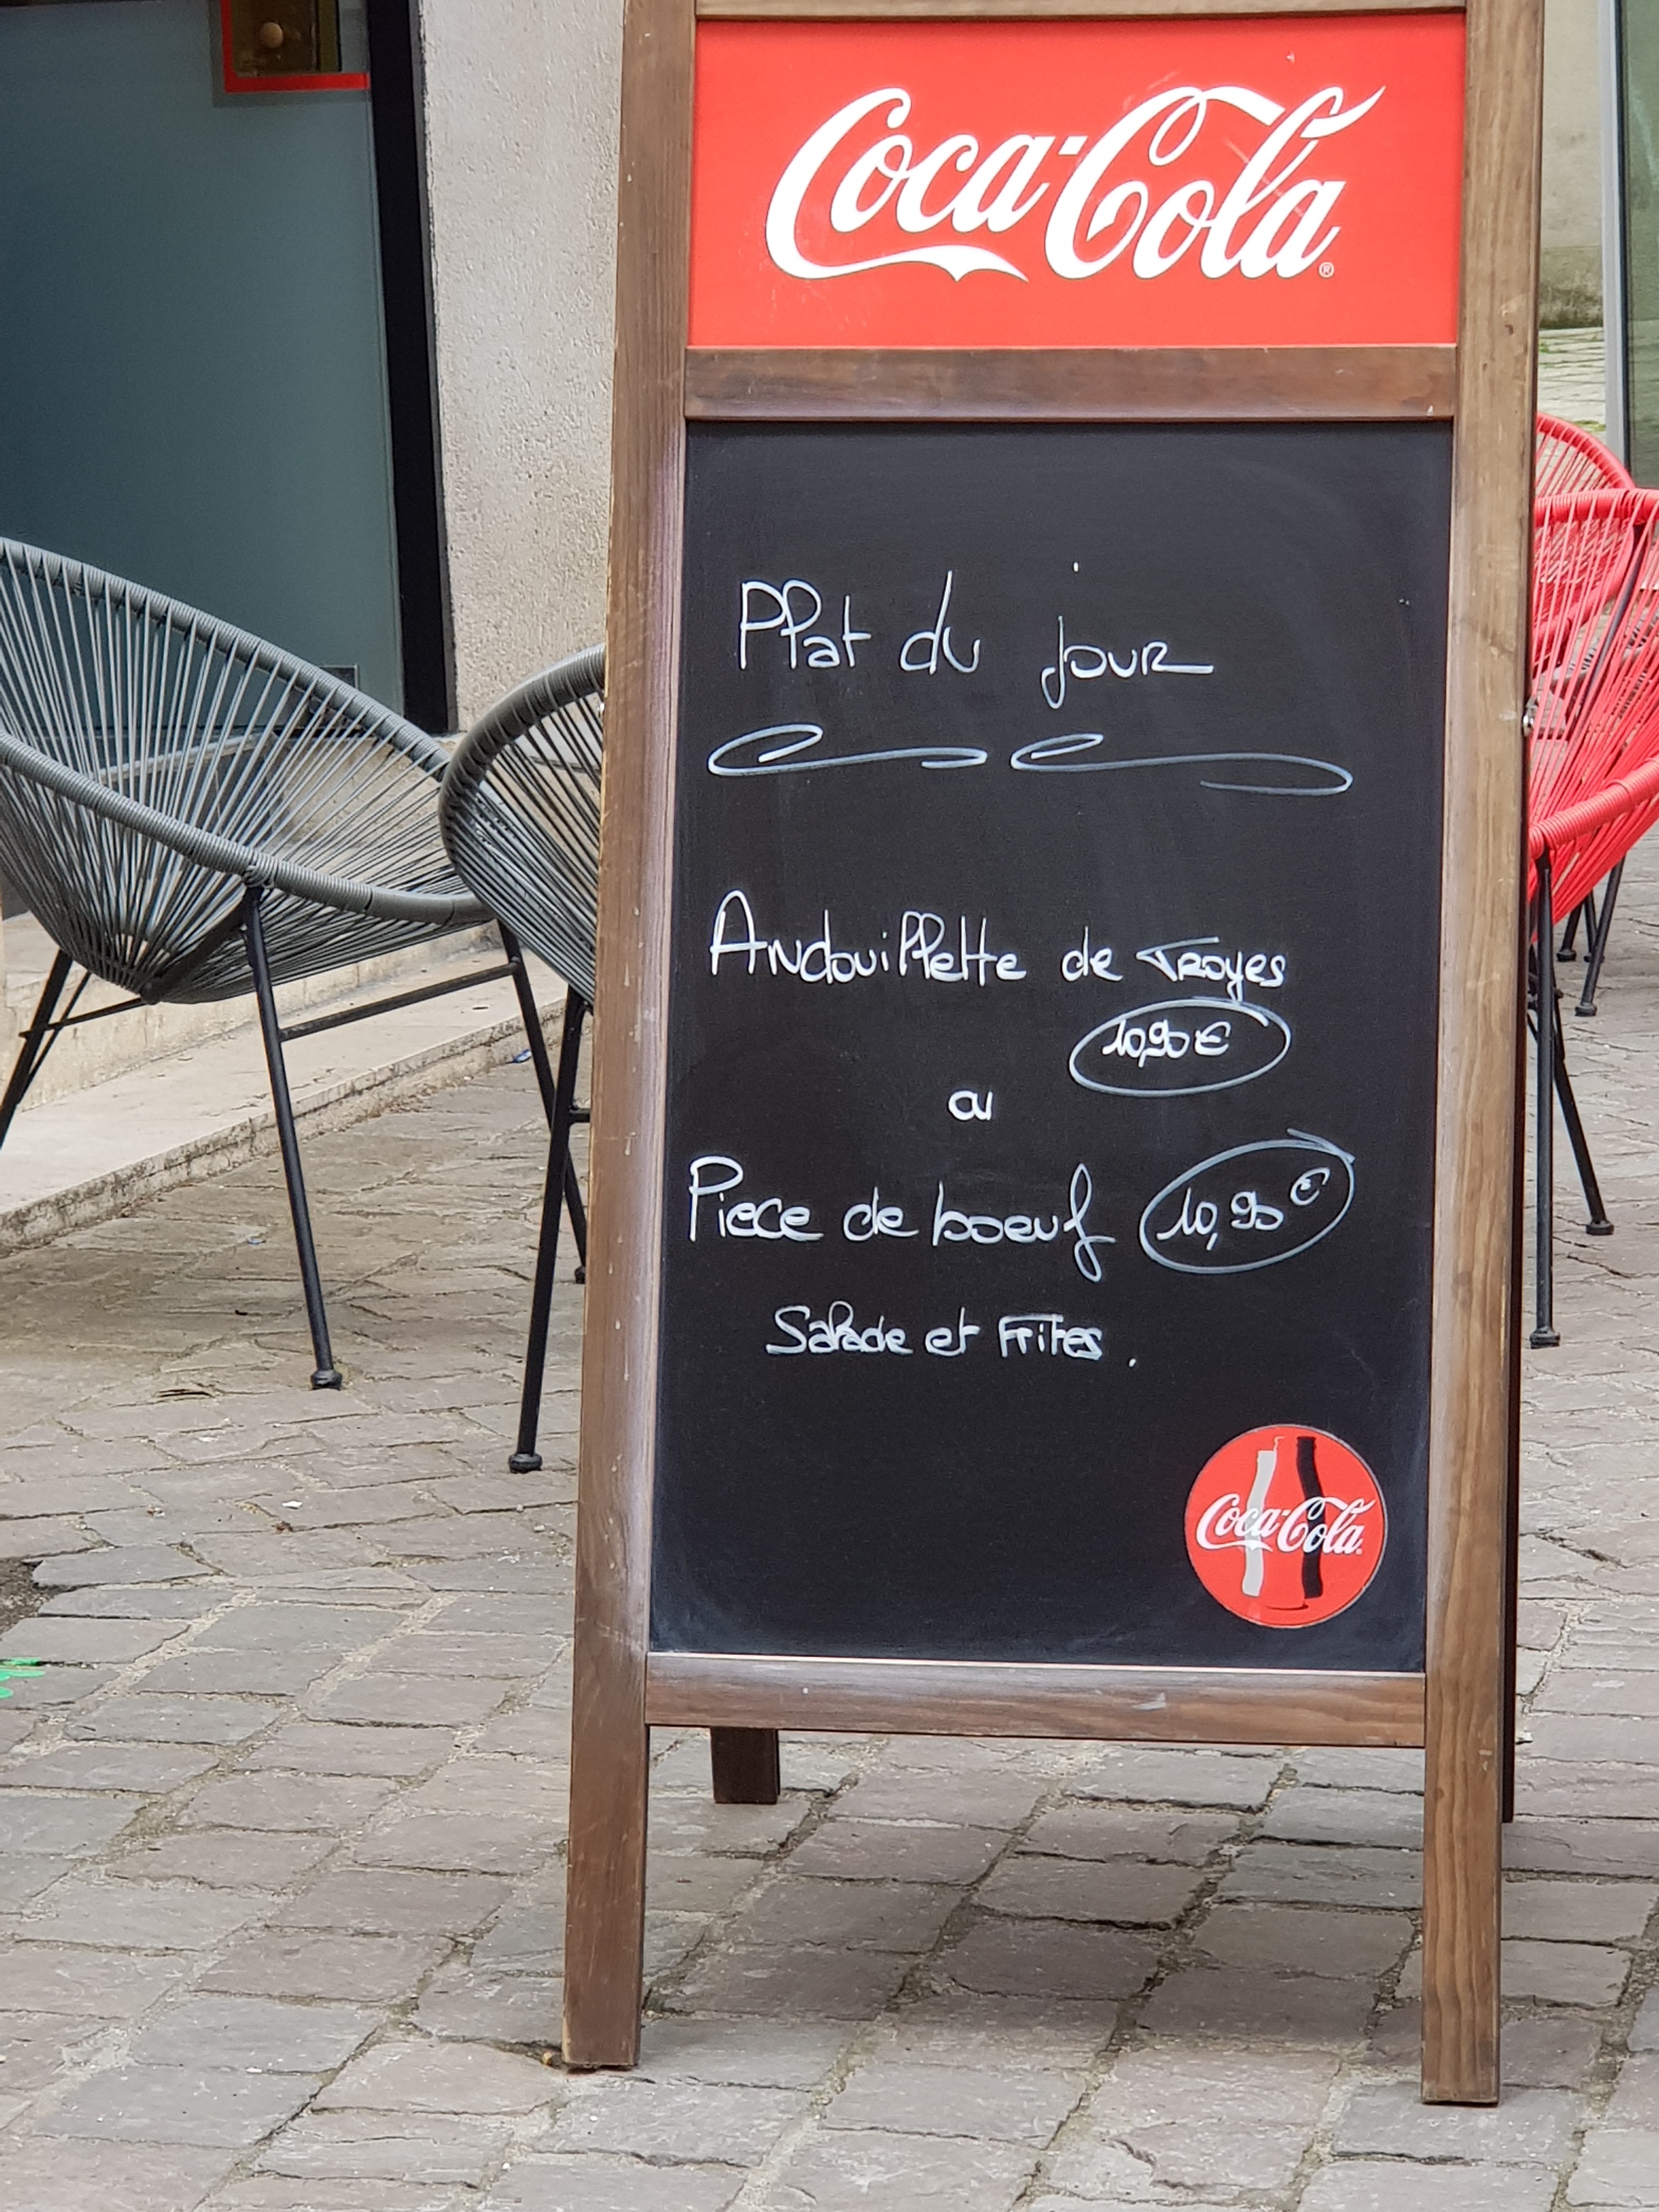 Coca-Cola
Plat du jour
Andouillette de Troyes
10,90€
ou
Piece de boeuf 10,90€
Salade et Frites.
Coca-Cola